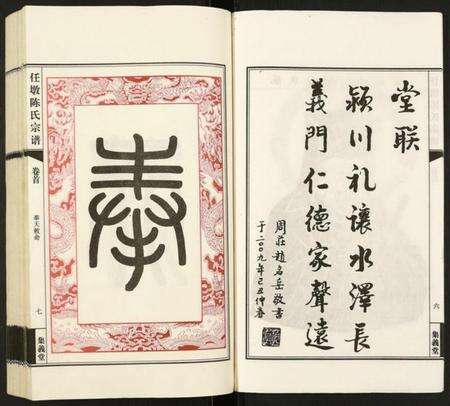 堂联
颍川礼讓水澤長
義門仁德家聲遠
周莊趙名岳敬书
于二00九年己丑仲春
六
集義堂
任墩陈氏宗谱
卷首
奉天敕命
七
集義堂
奉